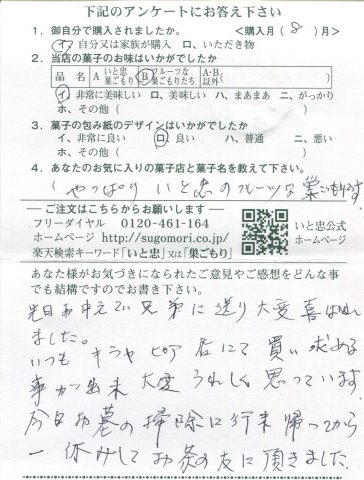 下記のアンケートにお答え下さい
1．御自分で購入されましたか。　＜購入月（8）月＞
イ、自分又は家族が購入　ロ、いただき物
2．当店の菓子のお味はいかがでしたか
品　名　A いと忠 巣ごもり　B フルーツな 巣ごもりたち　A・B 以外（　　　）
イ、非常に美味しい　ロ、美味しい　ハ、まあまあ　ニ、がっかり
ホ、その他（　　　）
3．菓子の包み紙のデザインはいかがでしたか
イ、非常に良い　ロ、良い　ハ、普通　ニ、悪い
ホ、その他（　　　）
4．あなたのお気に入りの菓子店と菓子名を教えて下さい。
（やっぱり いと忠のフルーツな巣ごもりです）
― ご注文はこちらからお願いします ―
フリーダイヤル　0120-461-164
ホームページ　http://sugomori.co.jp/
楽天検索キーワード「いと忠」又は「巣ごもり」
いと忠公式
ホームページ
あなた様がお気づきになられたご意見やご感想をどんな事
でも結構ですのでお書き下さい。
先日お中元で兄弟に送り大変喜ばれ
ました。
いつも キラヤ ピア 店にて 買い求める
事が出来 大変 うれしく 思っています。
今日お墓の掃除に行来 帰ってから
一休みして お茶の友に頂きました。